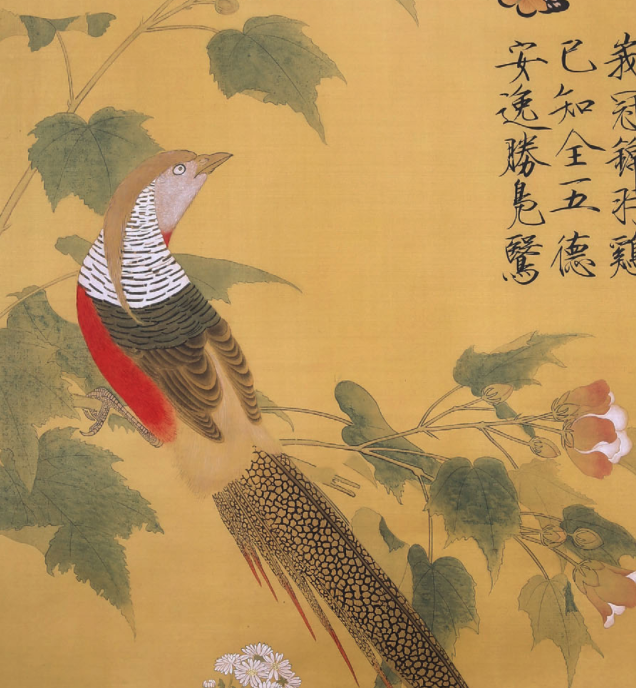 峩冠錦羽
已知全五德
安逸勝鳧鷖